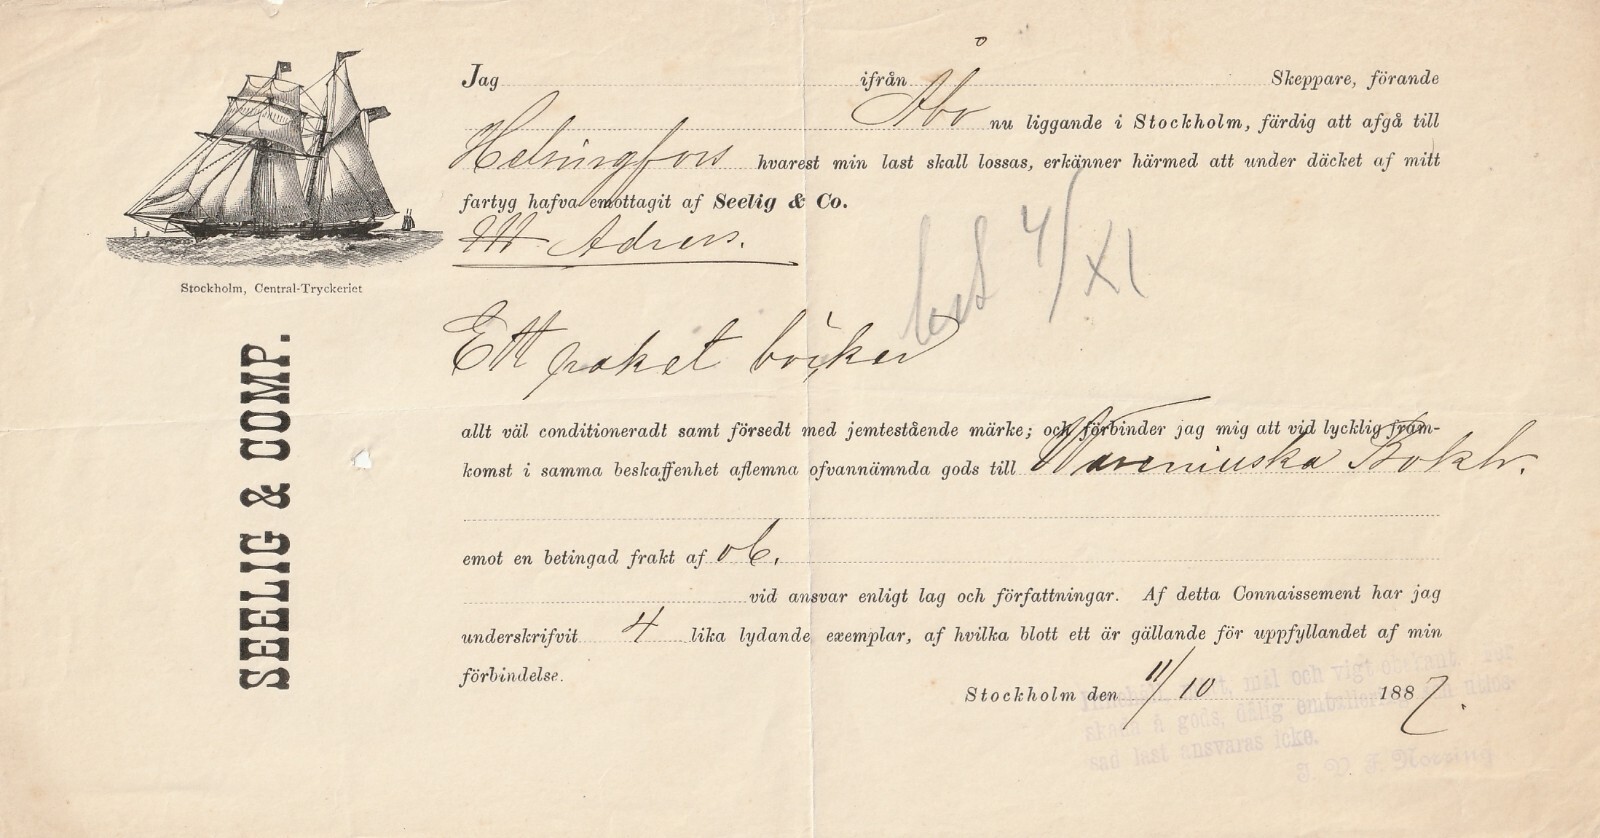 Jag ifrån Skeppare, förande
Åbo nu liggande i Stockholm, färdig att afgå till
Helsingfors hvarest min last skall lossas, erkänner härmed att under däcket af mitt
fartyg hafva emottagit af Seelig & Co.
Adress.
4/XI
Stockholm, Central-Tryckeriet
SEELIG & COMP.
Ett paket böcker
allt väl conditioneradt samt försedt med jemtestående märke; och förbinder jag mig att vid lycklig fram-
komst i samma beskaffenhet aflemna ofvannämnda gods till Waseniuska Bokh.
emot en betingad frakt af ob.
vid ansvar enligt lag och författningar. Af detta Connaissement har jag
underskrifvit 4 lika lydande exemplar, af hvilka blott ett är gällande för uppfyllandet af min
förbindelse.
Stockholm den 11/10 1887.
mål och vigt obekant
skada å gods, dålig emballering
sad last ansvaras icke.